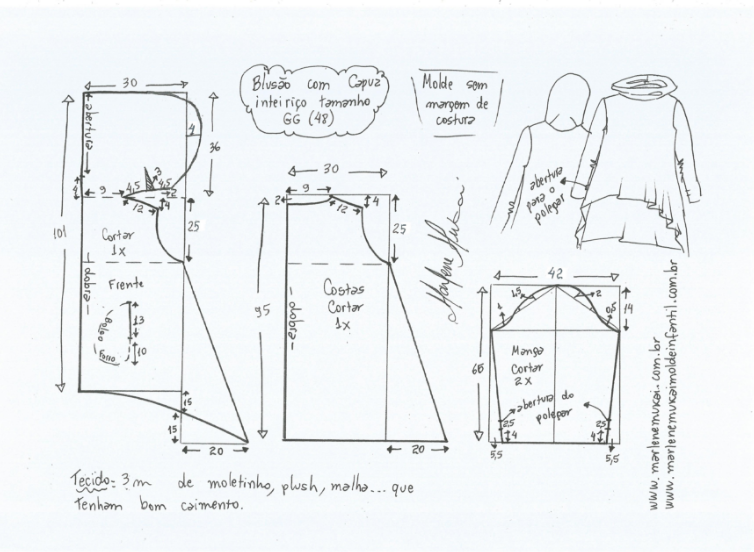 Blusão com Capuz
inteiriço tamanho
GG (48)
Molde sem
margem de
costura
30
abertura
4
36
3
4
9
4,5
4,5
2
12
4
25
101
Cortar
1x
dobra
Frente
Bolso
13
Forro
10
15
15
20
30
9
2
12
4
25
95
Costas
Cortar
1x
dobra
20
Marlene Mukai
abertura
para o
polegar
42
1,5
2
1
0,5
14
65
Manga
Cortar
2x
abertura do
polegar
2,5
2,5
4
4
5,5
5,5
www.marlenemukai.com.br
www.marlenemukaimoldeinfantil.com.br
Tecido: 3 m de moletinho, plush, malha... que
tenham bom caimento.